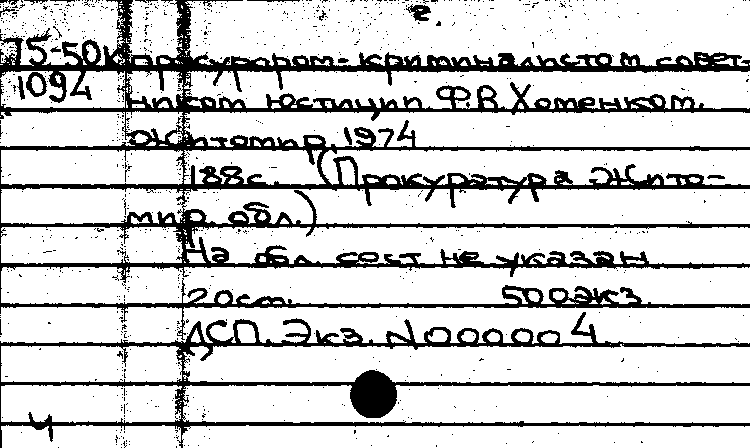 2.
75-50к прокурором-криминалистом совет-
1094 ником юстиции Ф.В.Хоменком.
Житомир, 1974
188с. (Прокуратура Жито-
мир. обл.)
На обл. сост не указан
20см. 500экз.
ДСП. Экз. №000004
ч